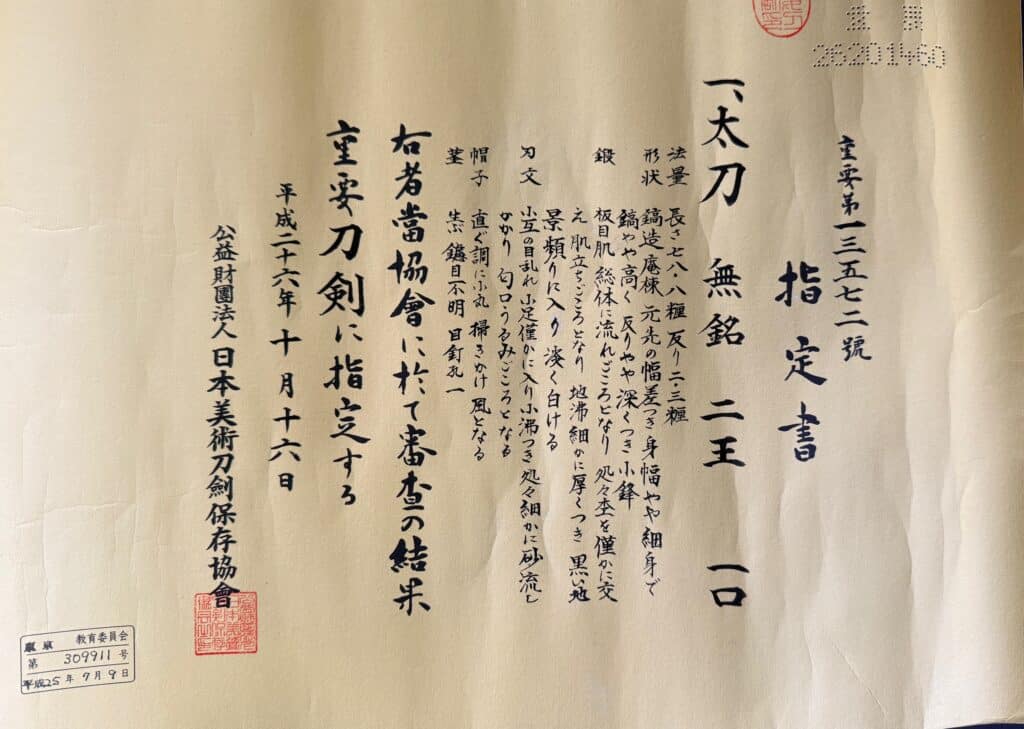 重要
26201460
重要第一三五七二號
指定書
一、太刀 無銘 二王 一口
法量 長さ七八・八糎 反り二・三糎
形状 鎬造 庵棟 元先の幅差つき 身幅やや細身で
鎬やや高く 反りやや深くつき 小鋒
鍛 板目肌 総体に流れごころとなり 処々杢を僅かに交
え 肌立ちごころとなり 地沸細かに厚くつき 黒い地
景頻りに入り 淡く白ける
刃文 小互の目乱れ 小足僅かに入り 小沸つき 処々細かに砂流し
かかり 匂口うるみごころとなる
帽子 直ぐ調に小丸 掃きかけ風となる
茎 生ぶ 鑢目不明 目釘孔一
右者當協會に於て審査の結果
重要刀剣に指定する
平成二十六年十月十六日
公益財團法人日本美術刀劍保存協會
東京 教育委員会
第 309911 号
平成25年7月9日